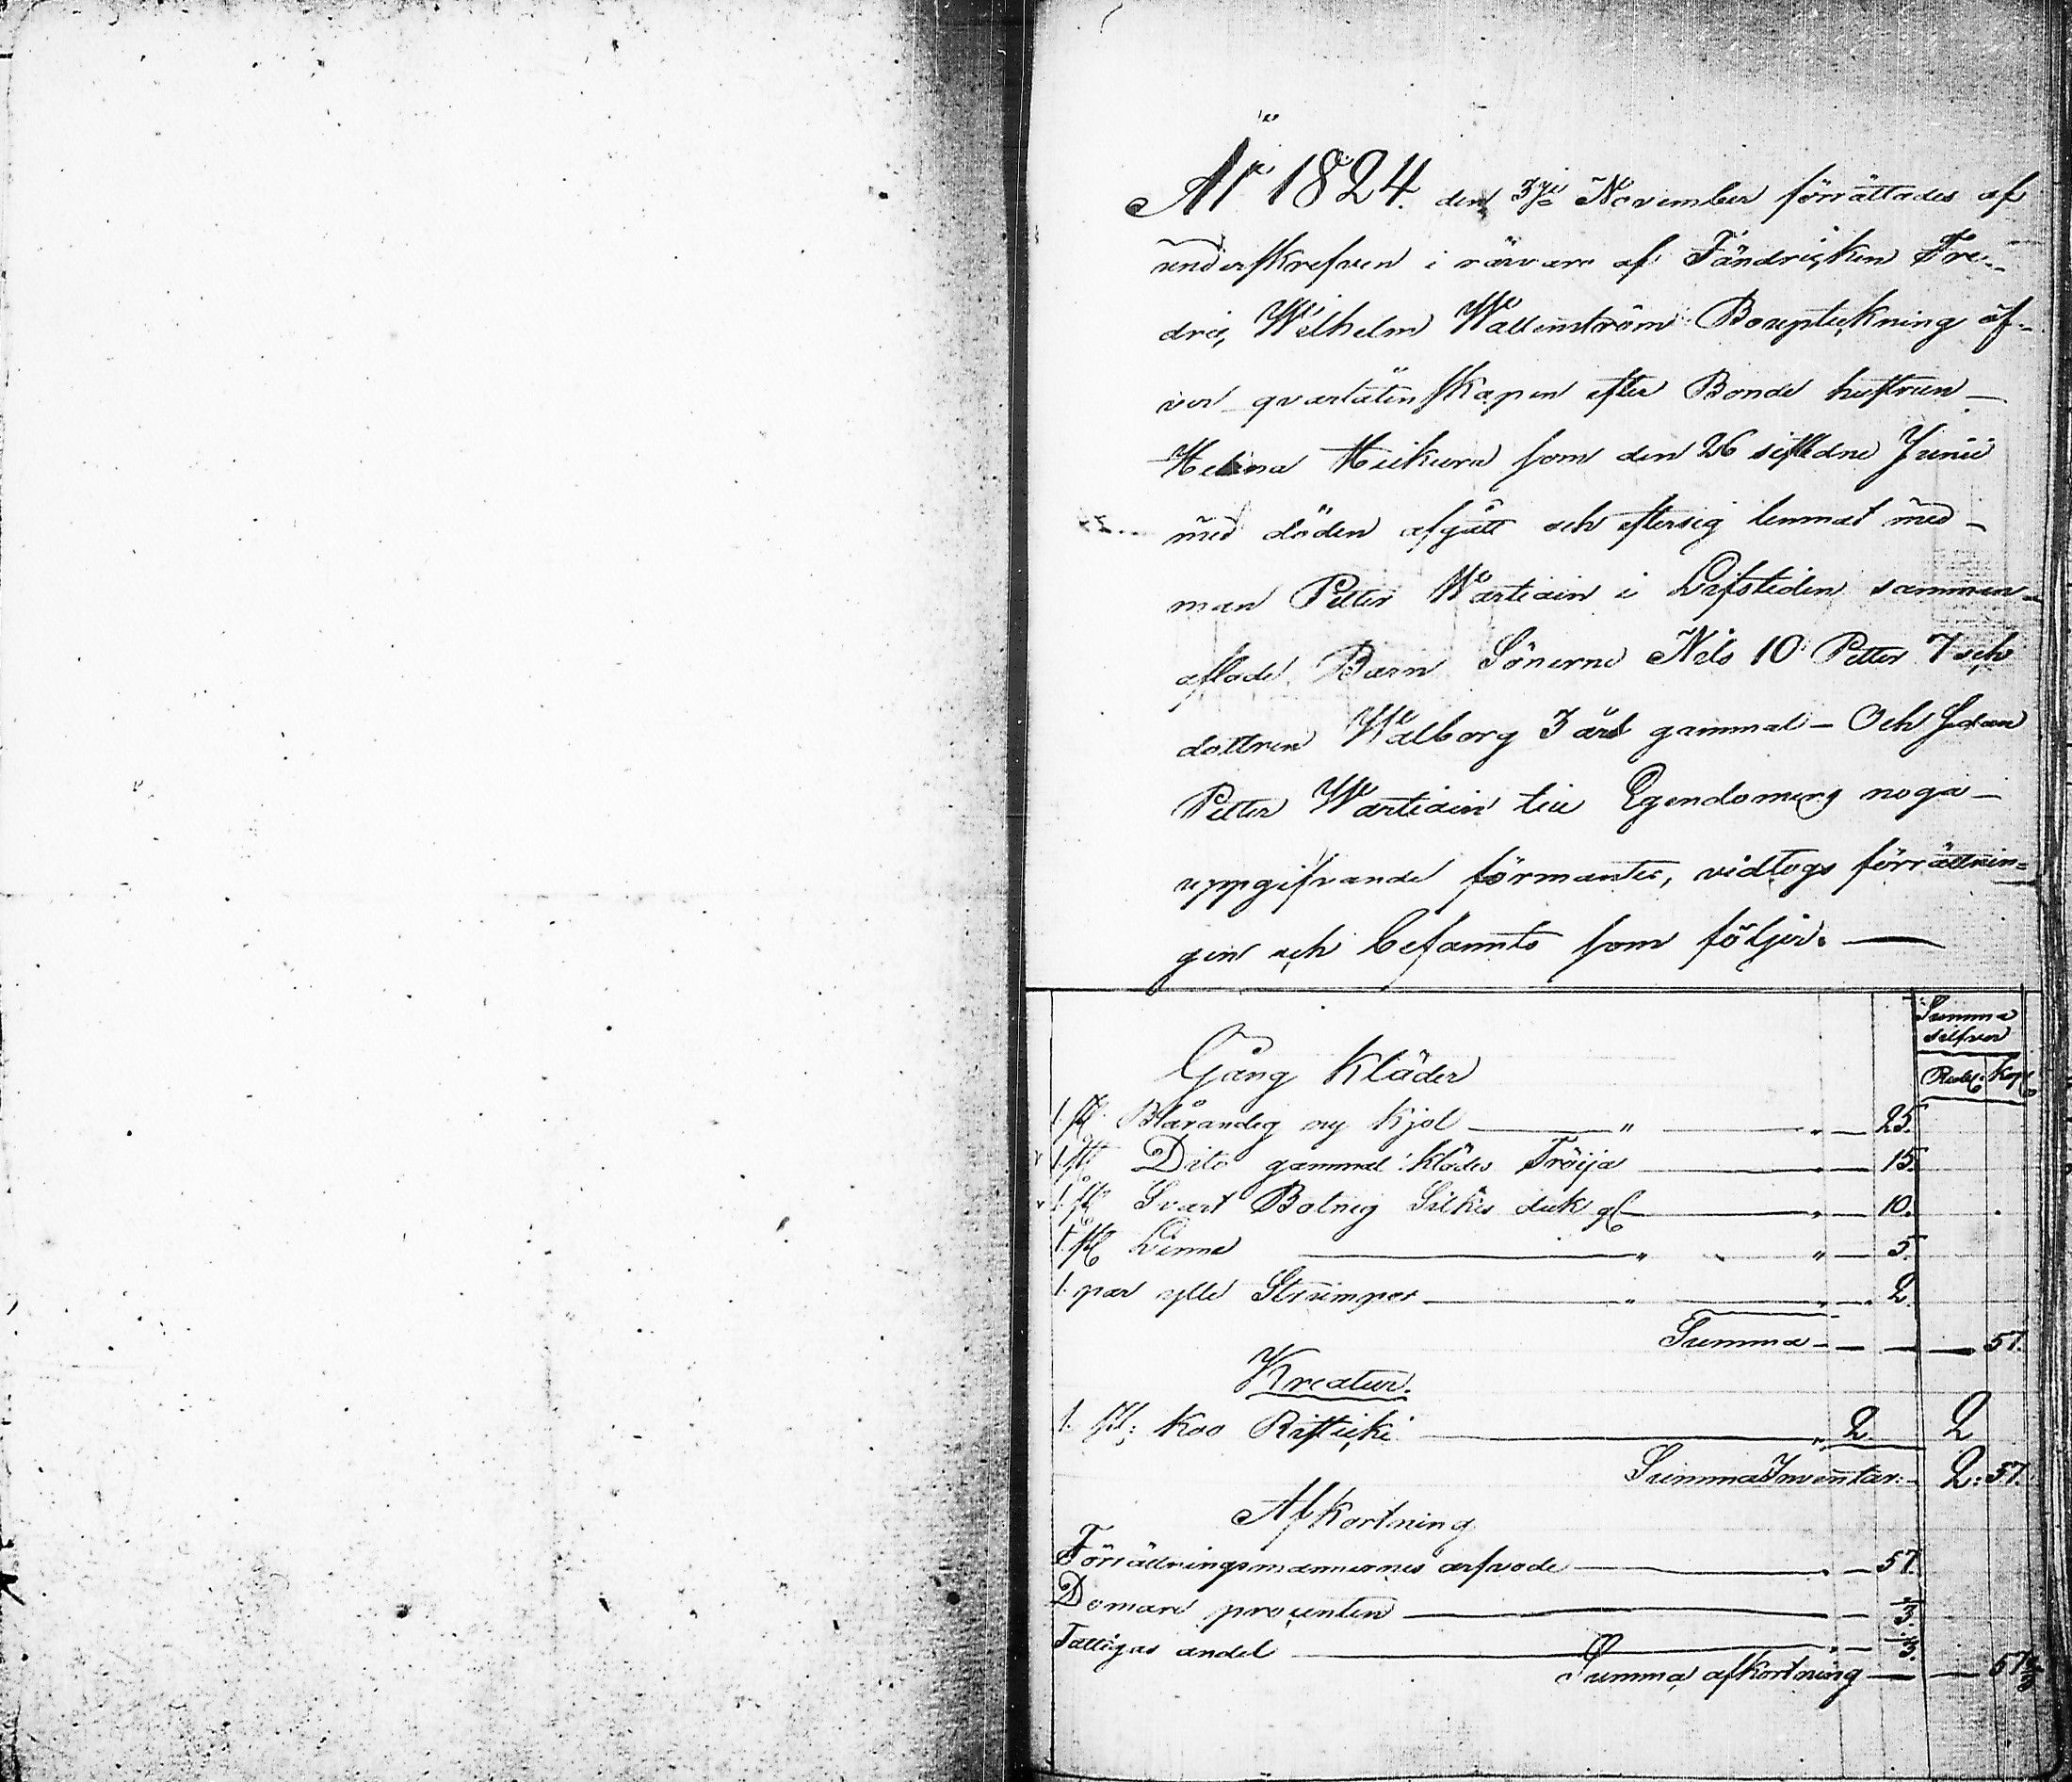 År 1824. den 3je November förrättades af
underskrefven i närvaro af Fändricken Fre-
dric Wilhelm Wallenström Bouptekning öf-
ver qvarlåtenskapen efter Bonde hustrun
Helena Huikura som den 26 sistledne Junii
med döden afgått och eftersig lemnat med
man Petter Wartiain i Lifstiden samman-
aflade Barn Sönerne Nils 10 Petter 7 och
dottren Walborg 3 års gammal - Och sedan
Petter Wartiain till Egendomens noga
uppgifvande förmantes, vidtogs förrättnin-
gen och befannts som följer.
Summa
silfver
Gång Kläder
Rubl. Kop
1. st. Blårandig ny Kjol " " 25.
1. st. Dito gammal Klädes Tröija " 15.
1. st. Svart Botnig Silkes duk gl " 10.
1. st. Linne " " 5.
1. par ylle Strumpor " " 2.
Summa 57.
Kreatur.
1. st. Koo Risticki " 2 2
Summa Inventar. 2: 57.
Afkortning
Förrättningsmännernes arfvode 57.
Domare procenten 3.
Fattigas andel " 3.
Summa afkortning